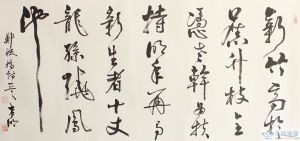 新竹高於
舊竹枝全
憑老幹為扶
持明年再有
新生者十丈
龍孫繞鳳
池